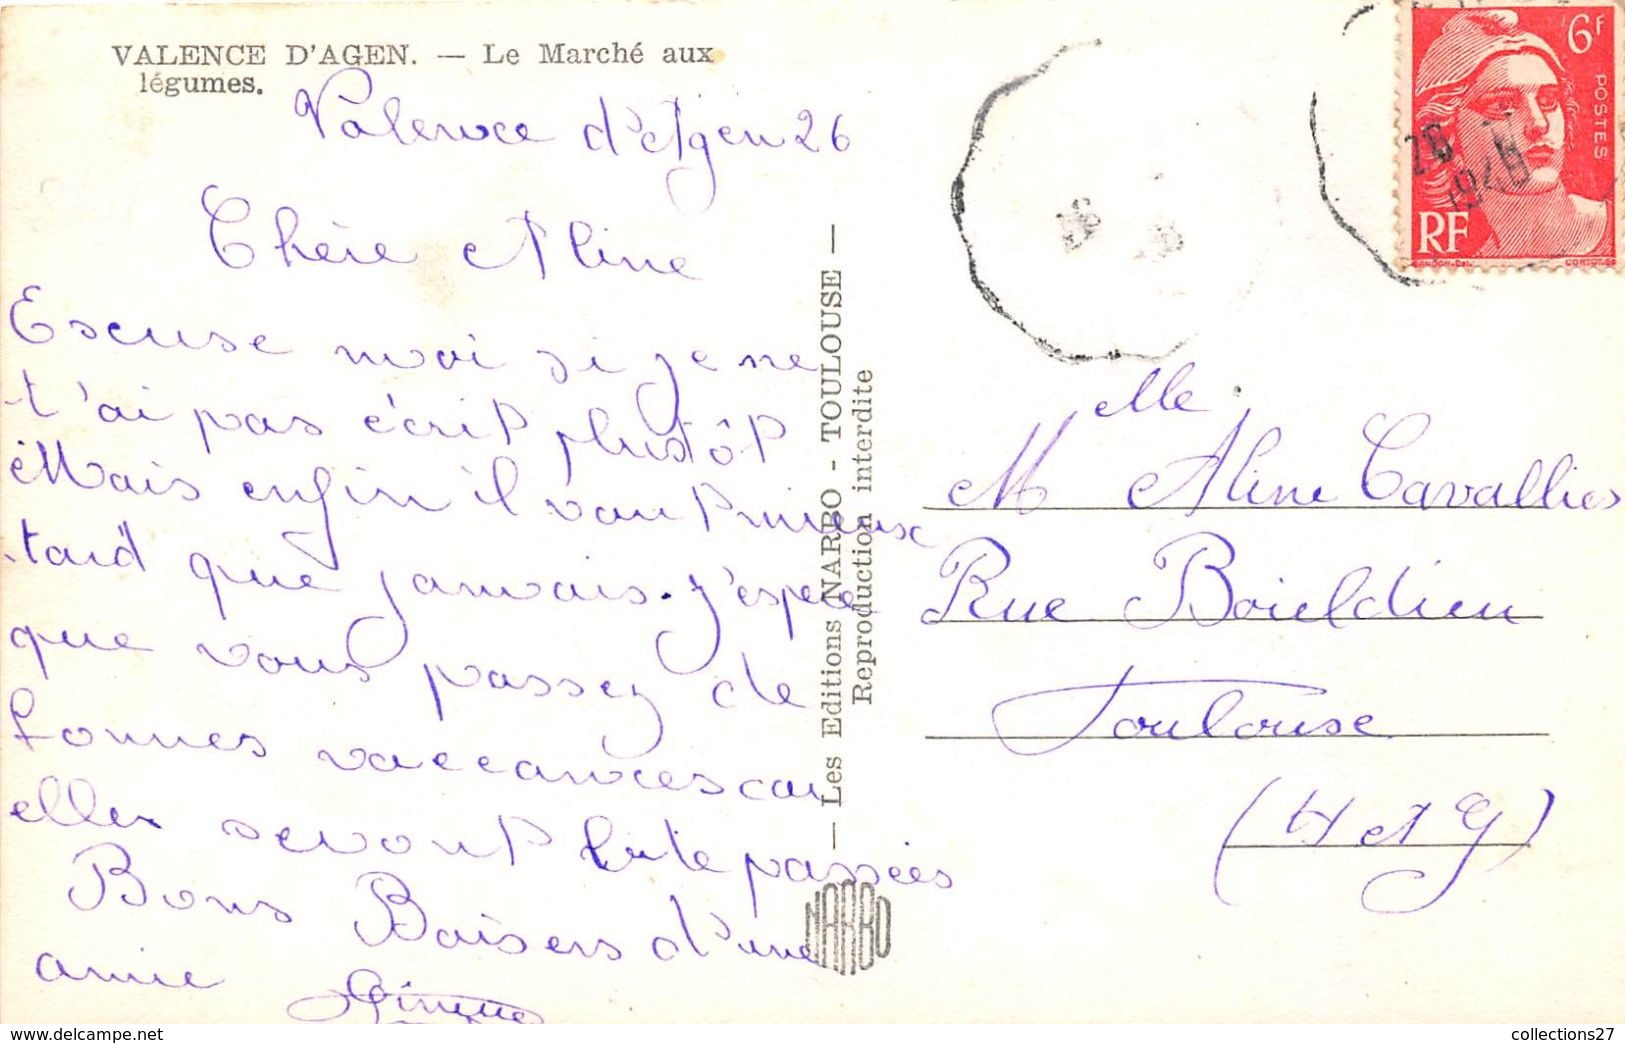 VALENCE D'AGEN. — Le Marché aux
légumes.
Valence d'Agen 26
Chère Aline
Escuse moi si je ne
t'ai pas écrit plustôt
Mais enfin il vaut mieux
tard que jamais. J'espère
que vous passez de
bonnes vaccances car
elles seront bite passées
Bons Baisers d'une
amie
— Les Editions NARBO - TOULOUSE —
Reproduction interdite
NARBO
6F
POSTES
RF
GANDON.
CORTOT.
26
Melle Aline Cavalliès
Rue Boieldieu
Toulouse
(H et G)
collections27